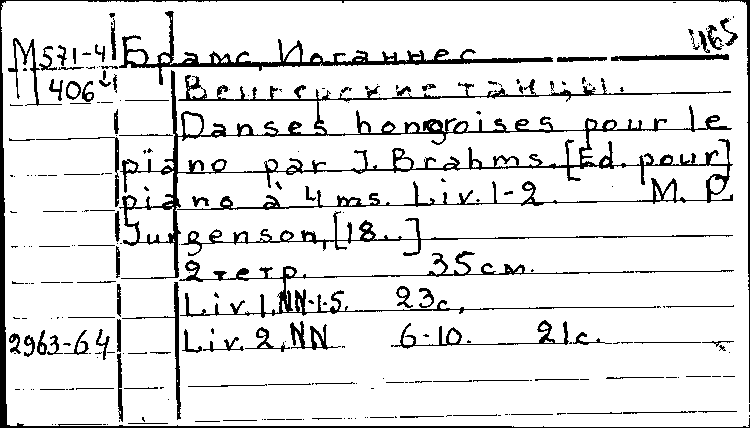 465
М571-4 Брамс, Иоганнес
406 Венгерские танцы.
Danses hongroises pour le
piano par J. Brahms. [Ed. pour]
piano à 4 ms. Liv. 1-2. M. P.
Jurgenson, [18..]
2 тетр. 35 см.
Liv. 1, NN 1-5. 23 с.
2963-64 Liv. 2, NN 6-10. 21 с.